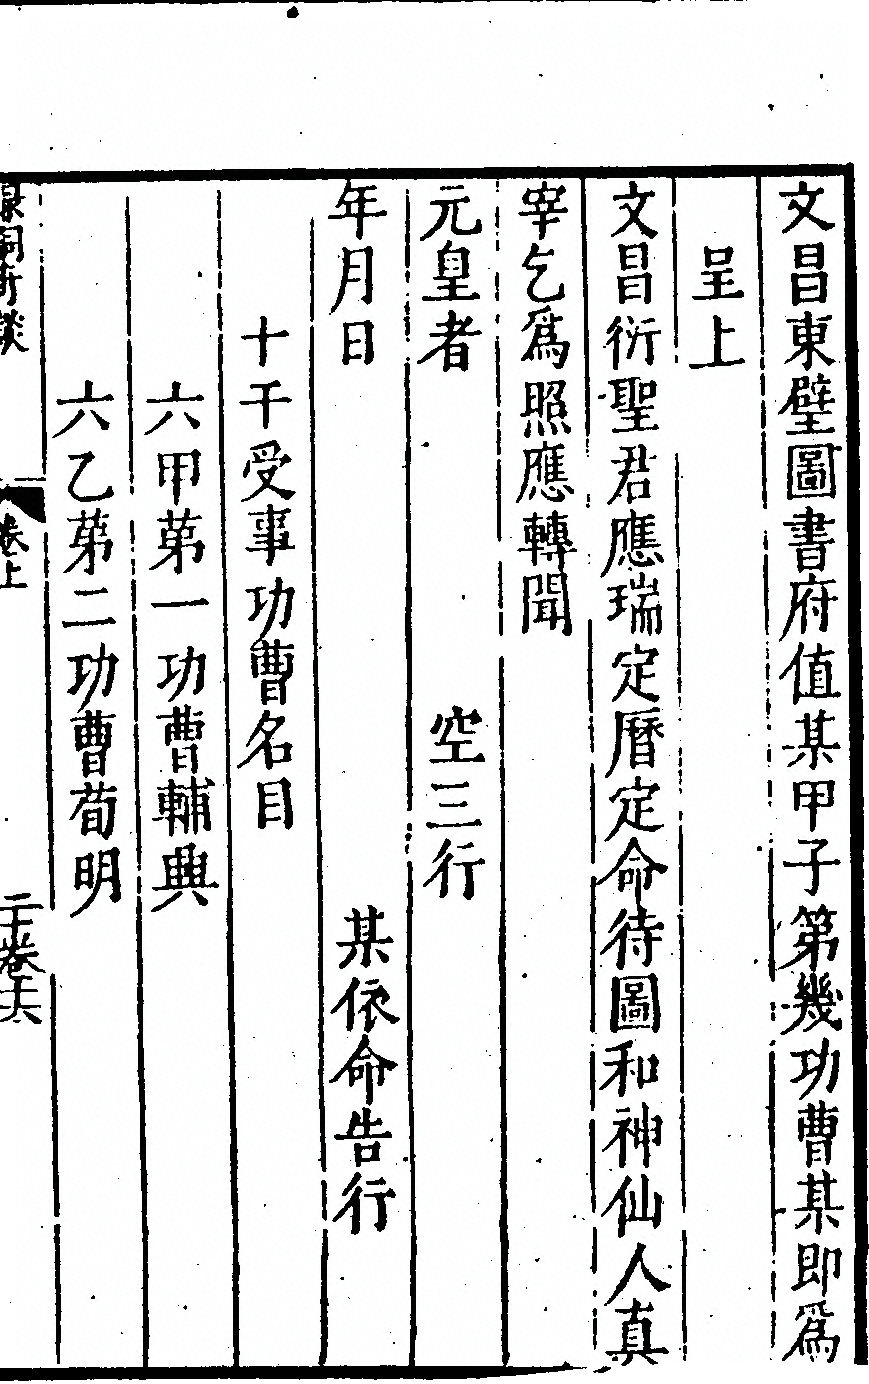 文昌東壁圖書府值某甲子第幾功曹某即爲
呈上
文昌衍聖君應瑞定曆定命待圖和神仙人真
宰乞爲照應轉聞
元皇者 空三行
年月日 某依命告行
十干受事功曹名目
六甲第一功曹輔興
六乙第二功曹荀明
卷上